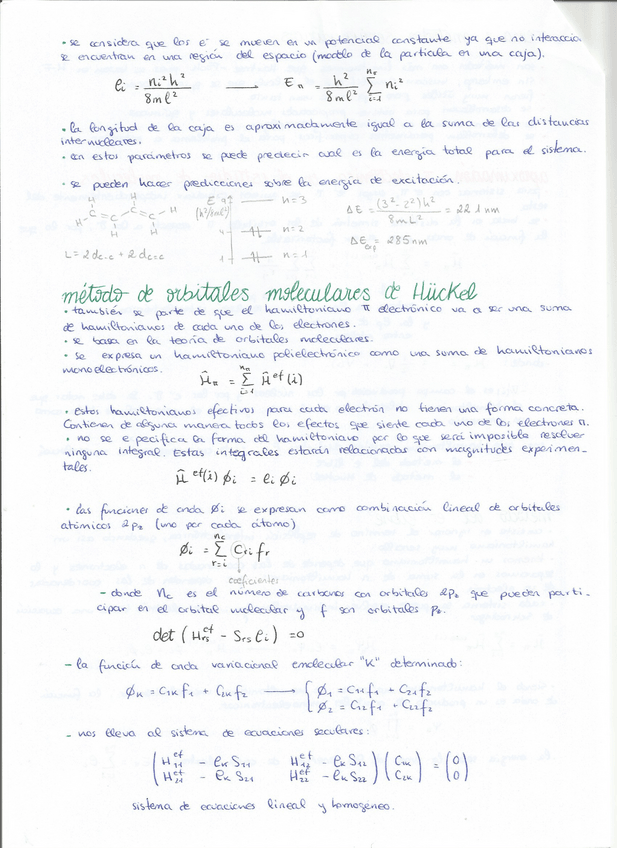 · se considera que los e⁻ se mueven en un potencial constante ya que no interaccio
se encuentran en una región del espacio (modelo de la partícula en una caja).
ei = ni²h² / 8ml² ⟶ Eπ = h² / 8ml² Σ(i=1, nπ) ni²
· la longitud de la caja es aproximadamente igual a la suma de las distancias
internucleares.
· con estos parámetros se puede predecir cual es la energía total para el sistema.
· se pueden hacer predicciones sobre la energía de excitación.
H C = C C = C H H H H H
L = 2 dC-C + 2 dC=C
E (h²/8ml²)
9 n=3
4 n=2
1 n=1
ΔE = (3²-2²)h² / 8mL² = 221 nm
ΔEexp = 285 nm
método de orbitales moleculares de Hückel
· también se parte de que el hamiltoniano π electrónico va a ser una suma
de hamiltonianos de cada uno de los electrones.
· se basa en la teoría de orbitales moleculares.
· se expresa un hamiltoniano polielectrónico como una suma de hamiltonianos
monoelectrónicos.
Ĥπ = Σ(i=1, nπ) Ĥ^ef(i)
· Estos hamiltonianos efectivos para cada electrón no tienen una forma concreta.
Contienen de alguna manera todos los efectos que siente cada uno de los electrones π.
· no se especifica la forma del hamiltoniano por lo que será imposible resolver
ninguna integral. Estas integrales estarán relacionadas con magnitudes experimen-
tales.
Ĥ^ef(i) ϕi = ei ϕi
· las funciones de onda ϕi se expresan como combinación lineal de orbitales
atómicos 2pz (uno por cada átomo)
ϕi = Σ(r=i, nc) Cri fr
coeficientes
- donde nc es el número de carbonos con orbitales 2pz que pueden parti-
cipar en el orbital molecular y f son orbitales pz.
det (Hrs^ef - Srs ei) = 0
- la función de onda variacional emolecular "K" determinado:
ϕK = C1K f1 + C2K f2 ⟶ { ϕ1 = C11 f1 + C21 f2
ϕ2 = C12 f1 + C22 f2
- nos lleva al sistema de ecuaciones seculares:
( H11^ef - eK S11 H12^ef - eK S12 ) ( C1K ) = ( 0 )
( H21^ef - eK S21 H22^ef - eK S22 ) ( C2K ) ( 0 )
sistema de ecuaciones lineal y homogéneo.